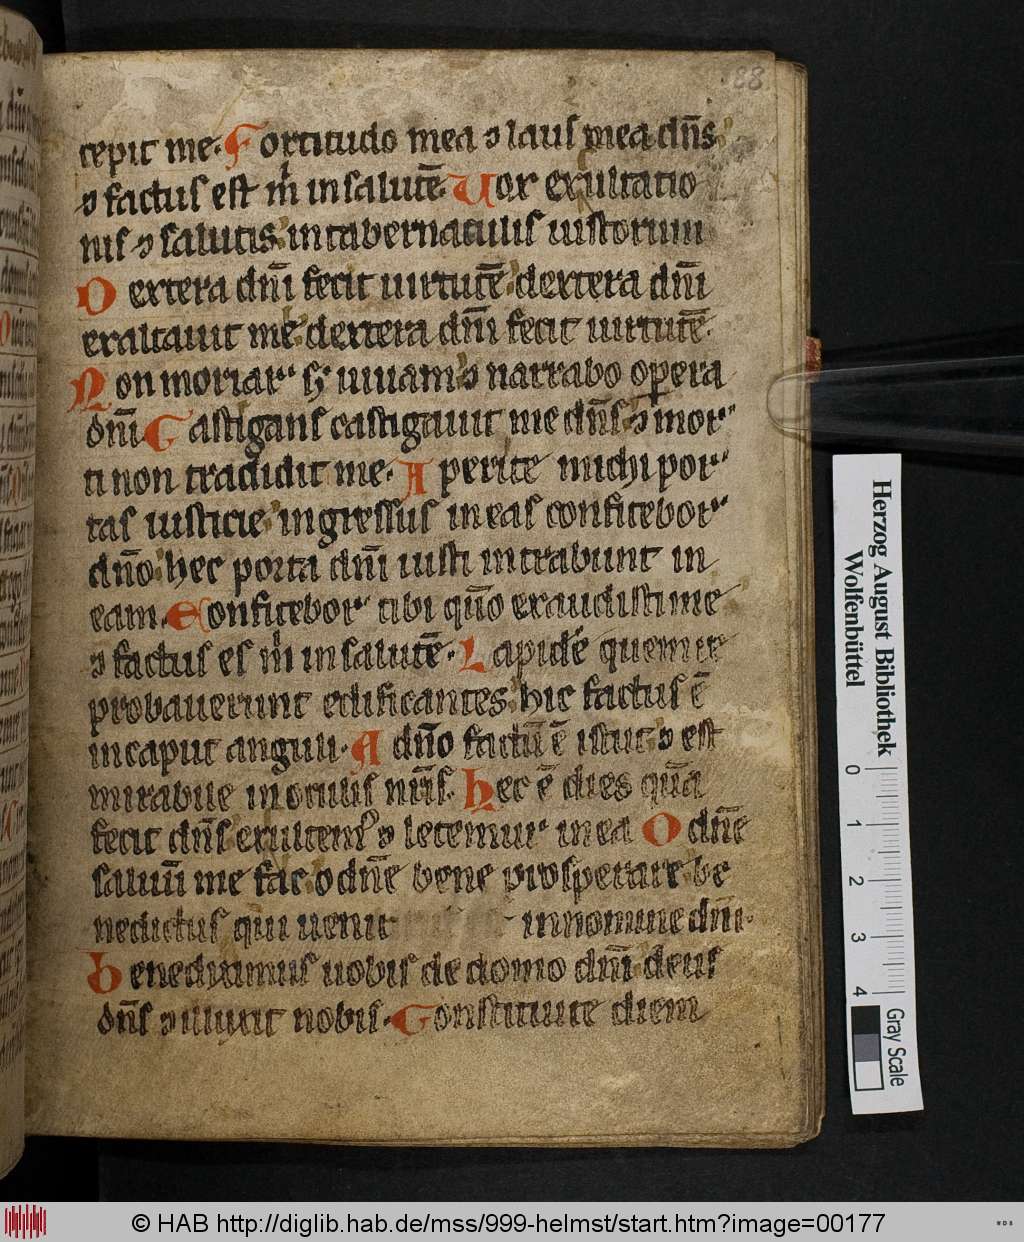 88
cepit me. Fortitudo mea ⁊ laus mea dn̄s
⁊ factus est m̍ in salutē. Uox exultatio
nis ⁊ salutis in tabernaculis iustorum
Dextera dn̄i fecit uirtutē dextera dn̄i
exaltauit me dextera dn̄i fecit uirtutē.
Non moriar s; uiuam ⁊ narrabo opera
dn̄i Castigans castigauit me dn̄s ⁊ mor
ti non tradidit me. Aperite michi por
tas iusticie ingressus in eas confitebor
dn̄o hec porta dn̄i iusti intrabunt in
eam. Confitebor tibi qūo exaudisti me
⁊ factus es m̍ in salutē. Lapidē quem
probauerunt edificantes hic factus ē
in caput anguli. A dn̄o factū ē istut ⁊ est
mirabile in oculis nr̄is. Hec ē dies quā
fecit dn̄s exultemꝰ ⁊ letemur in ea O dn̄e
saluū me fac o dn̄e bene prosperare be
nedictus qui uenit in nomine dn̄i.
Benediximus uobis de domo dn̄i deus
dn̄s ⁊ illuxit nobis. Constituite diem
Herzog August Bibliothek
Wolfenbüttel
0 1 2 3 4
Gray Scale
© HAB http://diglib.hab.de/mss/999-helmst/start.htm?image=00177